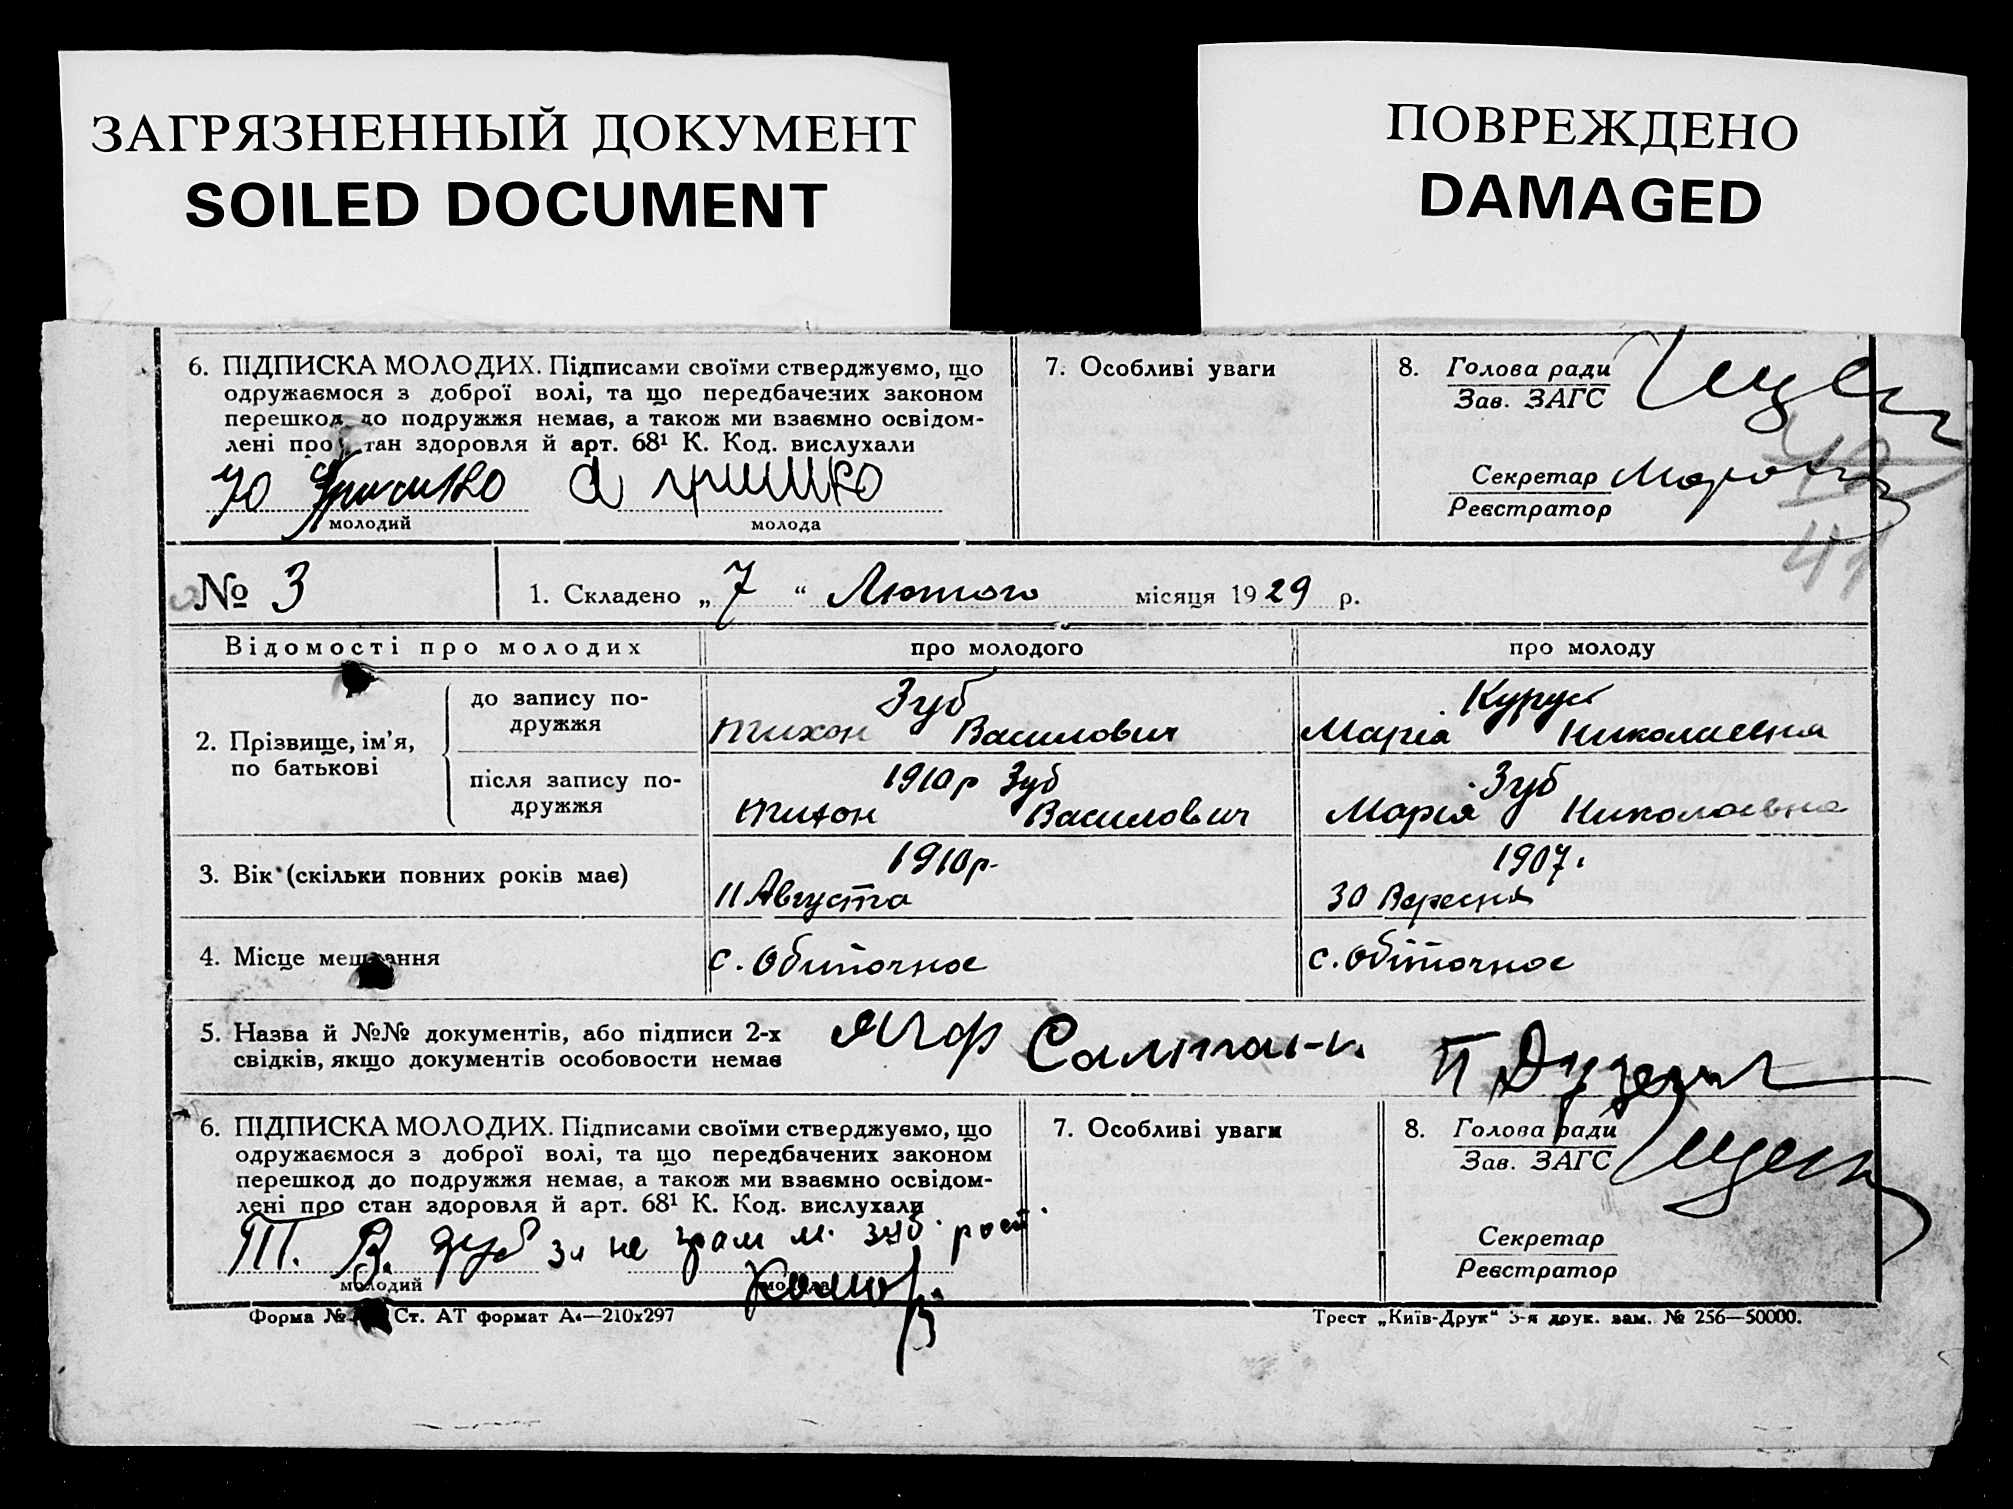 ЗАГРЯЗНЕННЫЙ ДОКУМЕНТ
SOILED DOCUMENT
ПОВРЕЖДЕНО
DAMAGED
6. ПІДПИСКА МОЛОДИХ. Підписами своїми стверджуємо, що
одружаємося з доброї волі, та що передбачених законом
перешкод до подружжя немає, а також ми взаємно освідом-
лені про стан здоровля й арт. 68¹ К. Код. вислухали
молодий
молода
7. Особливі уваги
8. Голова ради
Зав. ЗАГС
Секретар
Реєстратор
41
№ 3
1. Складено „7“ Лютого місяця 1929 р.
Відомості про молодих
про молодого
про молоду
2. Прізвище, ім'я,
по батькові
до запису по-
дружжя
Зуб
Тихон Василович
Марія Николаевна
після запису по-
дружжя
1910р Зуб
Тихон Василович
Зуб
Марія Николаевна
3. Вік (скільки повних років має)
1910р.
11 Августа
1907.
30 Вересня
4. Місце мешкання
с. Обиточное
с. Обиточное
5. Назва й №№ документів, або підписи 2-х
свідків, якщо документів особовости немає
6. ПІДПИСКА МОЛОДИХ. Підписами своїми стверджуємо, що
одружаємося з доброї волі, та що передбачених законом
перешкод до подружжя немає, а також ми взаємно освідом-
лені про стан здоровля й арт. 68¹ К. Код. вислухали
Т. В. Зуб за не грам м. зуб. рост.
молодий
7. Особливі уваги
8. Голова ради
Зав. ЗАГС
Секретар
Реєстратор
Форма № Ст. АТ формат А4—210х297
Трест „Київ-Друк“ 3-я друк. зам. № 256—50000.